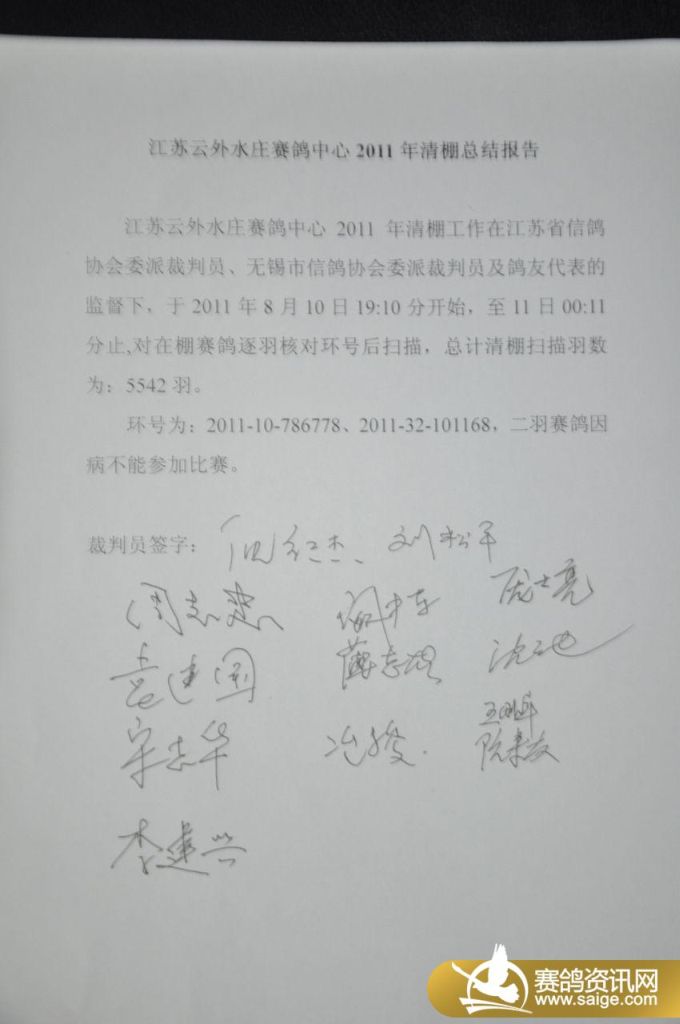 江苏云外水庄赛鸽中心 2011 年清棚总结报告
江苏云外水庄赛鸽中心 2011 年清棚工作在江苏省信鸽
协会委派裁判员、无锡市信鸽协会委派裁判员及鸽友代表的
监督下，于 2011 年 8 月 10 日 19:10 分开始，至 11 日 00:11
分止,对在棚赛鸽逐羽核对环号后扫描，总计清棚扫描羽数
为：5542 羽。
环号为：2011-10-786778、2011-32-101168，二羽赛鸽因
病不能参加比赛。
裁判员签字：倪红杰、刘松平
周志忠
袁建国
宋志华
李建兴
赛鸽资讯网
www.saige.com